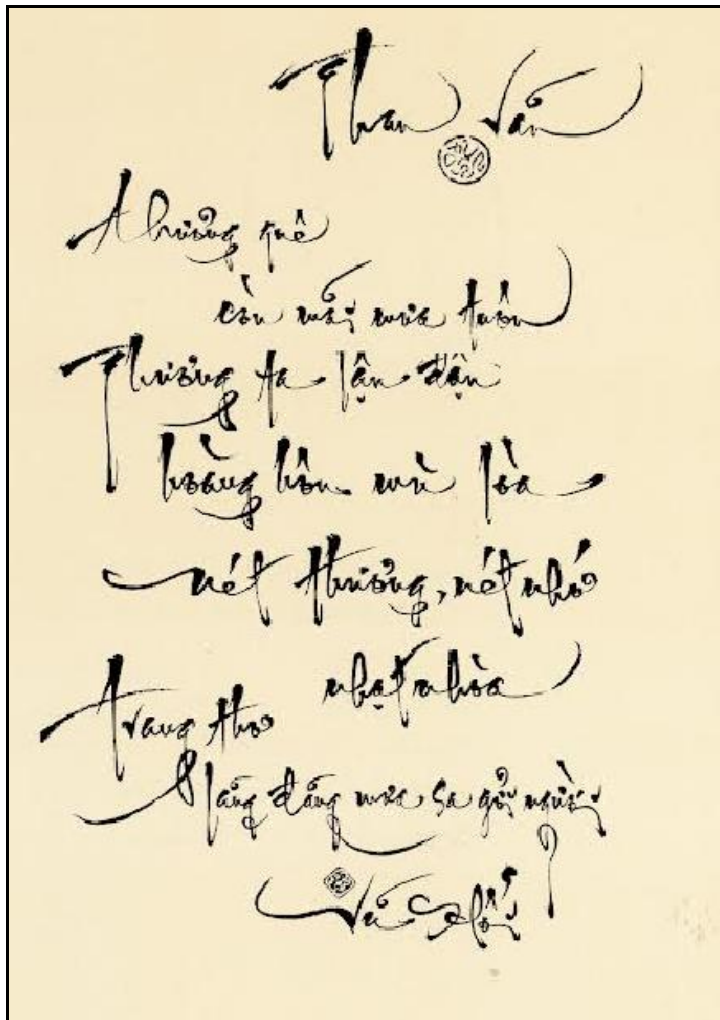 Than Vãn
Thương quê
còn mãi mưa tuôn
Thương ta lận đận
hoàng hôn mù lòa
nét thương, nét nhớ
nhạt nhòa
Trang thơ
lẵng đẵng mưa sa gửi người
Vũ Hối